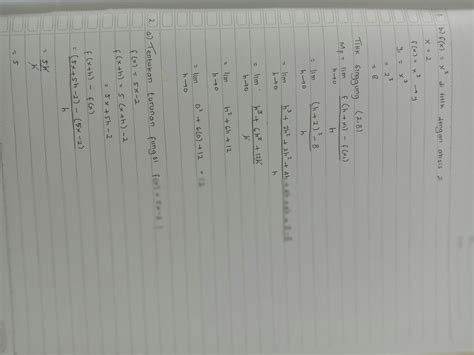 1. b) f(x) = x³ di titik dengan absis 2
x = 2
f(x) = x³ → y
y = x³
= 2³
= 8
Titik singgung (2,8)
= lim h→0 (h+2)³ - 8 / h
= lim h→0 h³ + 6h² + 12h / h
= lim h→0 h² + 6h + 12
= lim h→0 0² + 6(0) + 12 = 12
2. a) Tentukan turunan fungsi f(x) = 5x - 2
f(x) = 5x - 2
f(x+h) = 5(x+h) - 2
= 5x + 5h - 2
f(x+h) - f(x)
= (5x + 5h - 2) - (5x - 2) / h
= 5h / h
= 5